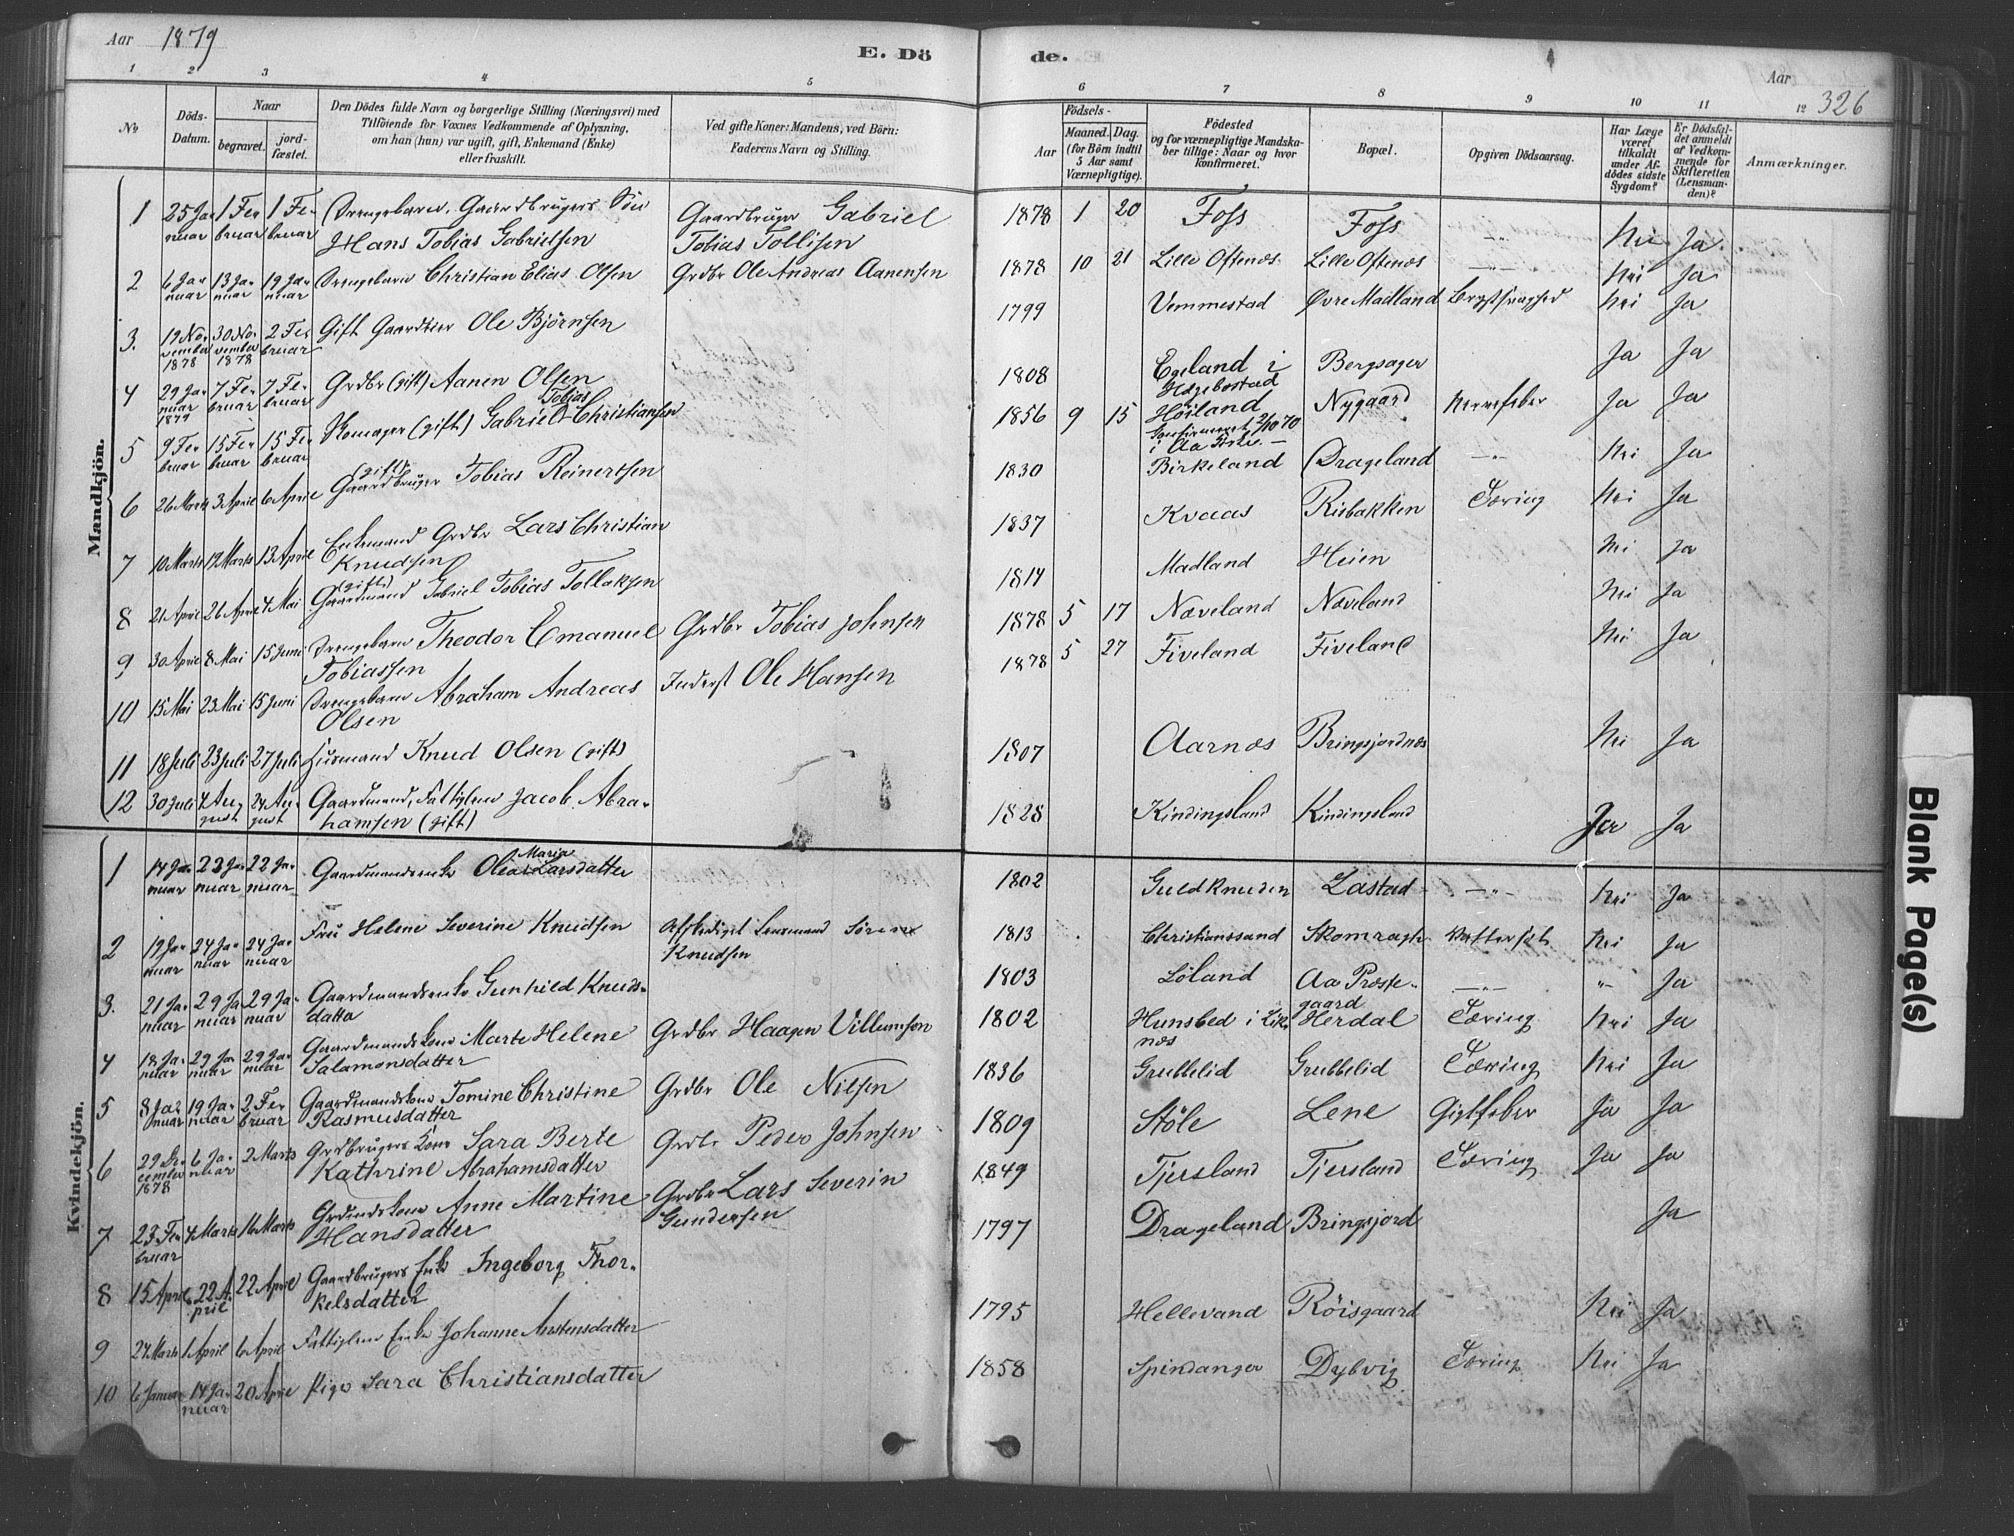 Aar 1879
E. Dö
de.
Aar
326
1 2 3 4 5 6 7 8 9 10 11 12
No
Döds-
Datum.
Naar
begravet.
jord-
fæstet.
Den Dödes fulde Navn og borgerlige Stilling (Næringsvei) med
Tilföiende for Voxnes Vedkommende af Oplysning,
om han (hun) var ugift, gift, Enkemand (Enke)
eller fraskilt.
Ved gifte Koner: Mandens, ved Börn:
Faderens Navn og Stilling.
Aar
Födsels-
Maaned. Dag.
(for Börn indtil
5 Aar samt
Værnepligtige).
Födested
og for værnepligtige Mandska-
ber tillige: Naar og hvor
konfirmeret.
Bopæl.
Opgiven Dödsaarsag.
Har Læge
været
tilkaldt
under Af-
dödes sidste
Sygdom?
Er Dödsfal-
det anmeldt
af Vedkom-
mende for
Skifteretten
(Lensman-
den)?
Anmærkninger.
Mandkjön.
1 25 Januar 1 Februar 1 Februar Drengebarn, Gaardbrugers Sön Gaardbruger Gabriel 1878 1 20 Foss Foss —„— Nei Ja
Hans Tobias Gabrielsen Tobias Tollisen
2 6 Januar 13 Januar 19 Januar Drengebarn Christian Elias Olsen Grdbr Ole Andreas Aanensen 1878 10 21 Lille Oftenæs Lille Oftenæs —„— Nei Ja
3. 19 November 1878 30 November 1878 2 Februar Gift Gaardbier Ole Björnsen 1799 Vemmestad Øvre Madland Brystsvaghed Nei Ja
4 29 Januar 1879 7 Februar 7 Februar Grdbr (gift) Aanen Olsen 1808 Egeland i Hægebostad Bergsager Ja Ja
5 9 Februar 15 Februar 15 Februar Skomager (gift) Gabriel Tobias Christiansen 1856 9 15 Höiland Nygaard Nervefeber Ja Ja
Confirmeret 2/10 70
i Aa Kirke. —
6 26 Marts 3 April 6 April (gift) Gaardbruger Tobias Reinertsen 1830 Birkeland Drageland —„— Nei Ja
7 10 Marts 19 Marts 13 April Enkemand Grdbr Lars Christian 1837 Kvaas Risbakken Tæring Nei Ja
Knudsen
8 21 April 26 April 4 Mai (gift) Gaardmand Gabriel Tobias Tollaksen 1814 Madland Heien Nei Ja
9 30 April 8 Mai 15 Juni Drengebarn Theodor Emanuel Grdbr Tobias Johnsen 1878 5 17 Næveland Næveland Nei Ja
Tobiassen
10 15 Mai 23 Mai 15 Juni Drengebarn Abraham Andreas Inderst Ole Hansen 1878 5 27 Fiveland Fiveland Nei Ja
Olsen
11 18 Juli 23 Juli 27 Juli Husmand Knud Olsen (gift) 1807 Aarnæs Bringsjordnæs Nei Ja
12 30 Juli 4 August 24 August Gaardmand, Fattiglem Jacob Abra-
hamsen (gift) 1828 Kindingsland Kindingsland Ja Ja
Kvindekjön.
1 14 Januar 23 Januar 22 Januar Gaardmandsenke Olea Maria Larsdatter 1802 Guldknuden Lastad —„— Nei Ja
2 19 Januar 24 Januar 24 Januar Fru Helene Severine Knudsen Afskediget Lensmand Sören 1813 Christianssand Skomragh Vattersot Nei Ja
Knudsen
3. 21 Januar 29 Januar 29 Januar Gaardmandsenke Gunhild Knuds- 1803 Löland Aa Præste- —„— „ Ja
datter gaard
4 18 Januar 29 Januar 29 Januar Gaardmandskone Marte Helene Grdbr Haagen Villumsen 1802 Hunsbed i Kvi- Herdal Tæring Nei Ja
Salamonsdatter næs
5 8 Januar 19 Januar 2 Februar Gaardmandskone Tomine Christine Grdbr Ole Nilsen 1836 Grubbelid Grubbelid Tæring Nei Ja
Rasmusdatter
6 29 December 1878 6 Januar 2 Marts Grdbrugers Kone Sara Berte Grdbr Peder Johnsen 1809 Stöle Lene Gigtfeber Ja Ja
Kathrine Abrahamsdatter
7 23 Februar 4 Marts 16 Marts Grdmdskone Anne Martine Grdbr Lars Severin 1849 Tjersland Tjersland Tæring Ja Ja
Hansdatter Gundersen
8 15 April 22 April 22 April Gaardbrugers Enke Ingeborg Thor- 1797 Drageland Bringsjord Ja
kelsdatter
9 24 Marts 1 April 6 April Fattiglem Enke Johanne Austensdatter 1795 Hellevand Röisgaard Nei Ja
10 6 Januar 14 Januar 20 April Pige Sara Christiansdatter 1858 Spindanger Dybvig Tæring Nei Ja
Blank Page(s)